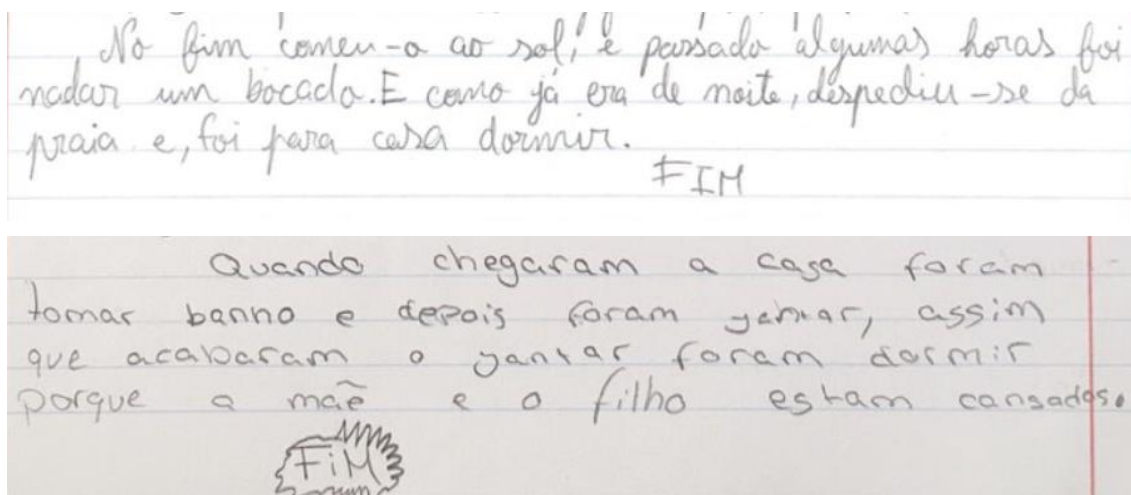 No fim comeu-o ao sol, e passado algumas horas foi
nadar um bocado. E como já era de noite, despediu-se da
praia e, foi para casa dormir.
FIM
Quando chegaram a casa foram
tomar banho e depois foram jantar, assim
que acabaram o jantar foram dormir
porque a mãe e o filho estam cansados.
FiM